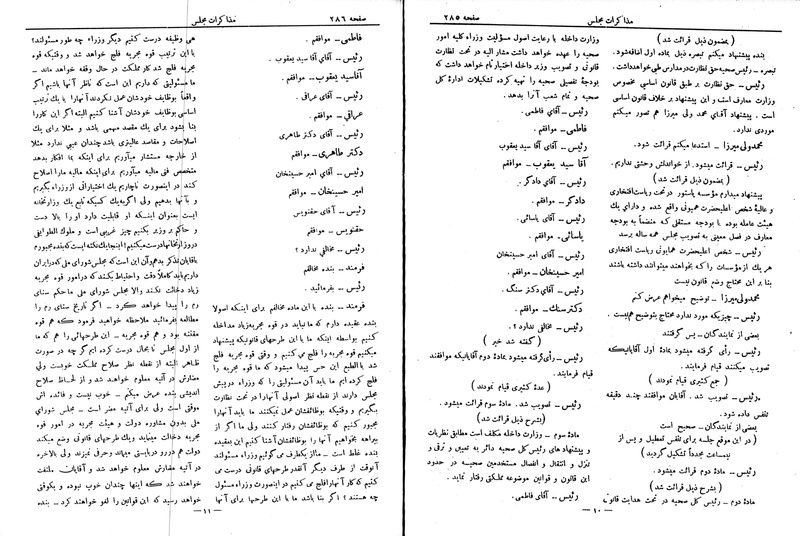 صفحه ۲۸۵
مذاکرات مجلس
(بمضمون ذیل قرائت شد)
بنده پیشنهاد میکنم تبصره ذیل بماده اول اضافه شود.
تبصره ـ رئیس صحیه حق نظارت در مدارس طبی خواهد داشت.
رئیس ـ حق نظارت بر طبق قانون اساسی مخصوص
وزارت معارف است و این پیشنهاد بر خلاف قانون اساسی
است. پیشنهاد آقای محمد ولی میرزا هم تصور میکنم
موردی ندارد.
محمدولی میرزا ـ استدعا میکنم قرائت شود.
رئیس ـ قرائت میشود. از خواندنش وحشتی نداریم.
(بمضمون ذیل قرائت شد)
پیشنهاد میدارم مؤسسه پاستور در تحت ریاست افتخاری
و عالیه شخص اعلیحضرت همیونی واقع شده و دارای یک
هیئت عامله بوده با بودجه مستقلی که منضماً به بودجه
معارف در فصل معینی به تصویب مجلس همه ساله برسد
رئیس ـ شخص اعلیحضرت همیونی ریاست افتخاری
هر یک از مؤسسات را که بخواهند میتوانند داشته باشند
بنا بر این محتاج وضع قانون نیست
محمدولی میرزا ـ توضیح میخواهم عرض کنم
رئیس ـ چیزیکه مورد ندارد محتاج بتوضیح هم نیست.
بعضی از نمایندگان ـ پس گرفتند
رئیس ـ رأی گرفته میشود بماده اول آقایانیکه
تصویب میکنند قیام فرمایند.
(جمع کثیری قیام نمودند)
رئیس ـ تصویب شد. آقایان موافقند چند دقیقه
تنفس داده شود.
بعضی از نمایندگان ـ صحیح است
(در این موقع جلسه برای تنفس تعطیل و پس از
نیمساعت مجدداً تشکیل گردید)
رئیس ـ ماده دوم قرائت میشود.
(بشرح ذیل قرائت شد)
ماده دوم ـ رئیس کل صحیه در تحت هدایت قانونی
وزارت داخله با رعایت اصول مسؤلیت وزراء کلیه امور
صحیه را عهده خواهد داشت مشار الیه در تحت نظارت
قانونی و تصویب وزیر داخله اختیار تام خواهد داشت که
بودجهٔ تفصیلی صحیه را تهیه کرده تشکیلات ادارهٔ کل
صحیه و تمام شعب آنرا بدهد.
رئیس ـ آقای فاطمی.
فاطمی ـ موافقم.
رئیس ـ آقای آقا سید یعقوب.
آقا سید یعقوب ـ موافقم
رئیس ـ آقای دادگر.
دادگر ـ موافقم.
رئیس ـ آقای یاسائی.
یاسائی ـ موافقم.
رئیس ـ آقای امیر حسینخان
امیر حسینخان ـ موافقم
رئیس ـ آقای دکتر سنگ.
دکتر سنگ ـ موافقم.
رئیس ـ مخالفی ندارد؟.
(گفته شد خیر)
رئیس ـ رأی گرفته میشود بمادهٔ دوم آقایانیکه موافقند
قیام فرمایند.
(عدهٔ کثیری قیام نمودند)
رئیس ـ تصویب شد. مادهٔ سوم قرائت میشود.
(بشرح ذیل قرائت شد)
مادهٔ سوم ـ وزارت داخله مکلف است مطابق نظریات
و پیشنهاد های رئیس کل صحیه دائر به تعیین و ترقی و
تنزل و انتقال و انفصال مستخدمین صحیه در حدود
این قانون و قوانین موضوعه مملکتی رفتار نماید.
رئیس ـ آقای فاطمی.
ـ ۱۰ ـ
صفحه ۲۸۶
مذاکرات مجلس
فاطمی ـ موافقم.
رئیس ـ آقای آقا سید یعقوب.
آقاسید یعقوب ـ موافقم.
رئیس ـ آقای عراقی.
عراقی ـ موافقم.
رئیس ـ آقای دکتر طاهری
دکتر طاهری ـ موافقم
رئیس ـ آقای امیر حسینخان
امیر حسینخان ـ موافقم
رئیس ـ آقای حقنویس
حقنویس ـ موافقم
رئیس ـ مخالفی ندارد؟
فرمند ـ بنده مخالفم
رئیس ـ بفرمائید.
فرمند ـ بنده با این ماده مخالفم برای اینکه اصولا
بنده عقیده دارم که ما نباید در قوه مجریه زیاد مداخله
کنیم بواسطه اینکه ما با این طرحهای قانونیکه پیشنهاد
میکنیم قوه مجریه را فلج می کنیم و وقتی قوه مجریه فلج
شد بالطبع این حس پیدا میشود که ما قوه مجریه را
فلج کرده ایم ما باید آن مسؤلیتی را که وزراء در پیش
مجلس دارند از نقطه نظر اصولی آنها را در تحت نظارت
بگیریم و وقتیکه بوظائفشان عمل نمیکنند ما باید آنها را
مجبور کنیم که بوظائفشان رفتار کنند ولی ما اگر از
بیراهه بخواهیم آنها را بوظائفشان آشنا کنیم این بعقیده
بنده غلط است ـ ما از یکطرف می گوئیم وزراء مسؤلند
آنوقت از طرف دیگر آنقدر طرحهای قانونی درست می
کنیم که کار آنها را فلج می کنیم در اینصورت وزراء مسؤل
چه هستند؟ اگر بنا باشد ما با این طرحها برای آنها
هی وظیفه درست کنیم دیگر وزراء چه طور مسؤلند؟
با این ترتیب قوه مجریه فلج خواهد شد و وقتیکه قوه
مجریه فلج شد کار مملکت در حال وقفه خواهد ماند ـ
ما مسؤلیتی که داریم این است که ناظر آنها باشیم اگر
واقعاً بوظایف خودشان عمل نکردند آنها را با یک ترتیب
اساسی بوظایف خودشان آشنا کنیم البته اگر این کار را
بنا بشود برای یک مقصد مهمی باشد و مثلا برای یک
اصلاحات و مقاصد عالیتری باشد چندان عیبی ندارد مثلا
از خارجه مستشار میآوریم برای اینکه بما افکار بدهد
متخصص فنی مالیه میآوریم برای اینکه مالیه مارا اصلاح
کند در اینصورت ناچاریم یک اختیاراتی از وزراء بگیریم
و به آنها بدهیم ولی اگر به یک کسیکه تابع یک وزارتخانه
است بعنوان اینکه او قابلیت دارد او را بالا دست
و حاکم بر وزیر بکنیم چیز غریبی است و ملوک الطوایفی
در وزارتخانها درست میکنیم! اینجا یک نکته است که بنده مجبورم
بآقایان تذکر بدهم و آن این است که مجلس شورای ملی که در ایران
داریم باید کاملا دقت و احتیاط بکنند که در امور قوه مجریه
زیاد دخالت نکند والا مجلس شورای ملی ما حکم سنای
رم را پیدا خواهد کرد ـ اگر تاریخ سنای رم را
مطالعه بفرمائید ملاحظه خواهید فرمود که هم قوه
مقننه بود و هم قوه مجریه ـ این طرحهائی را هم که ما
از اول مجلس تا بحال درست کرده ایم گر چه در صورت
ظاهر البته از نقطه نظر صلاح مملکت خوبست ولی
مضارش در آتیه معلوم خواهد شد و از لحاظ صلاح
اندیشی بنده عرض میکنم ـ خوب نیست و فائده اش
موقتی است ولی برای آتیه مضر است ـ مجلس شورای
ملی بدون مشاوره دولت و هیئت مجریه در امور قوه
مجریه دخالت مینماید و یک طرحهای قانونی وضع میکند
دولت هم در رو دربایستی میماند و حرفی نمیزند ولی بالاخره
در آتیه مضارش معلوم خواهد شد و آقایان ملتفت
خواهند شد که اینها چندان خوب نبوده و یکوقتی
خواهد رسید که این قوانین را لغو خواهند کرد ـ بنده
ـ ۱۱ ـ